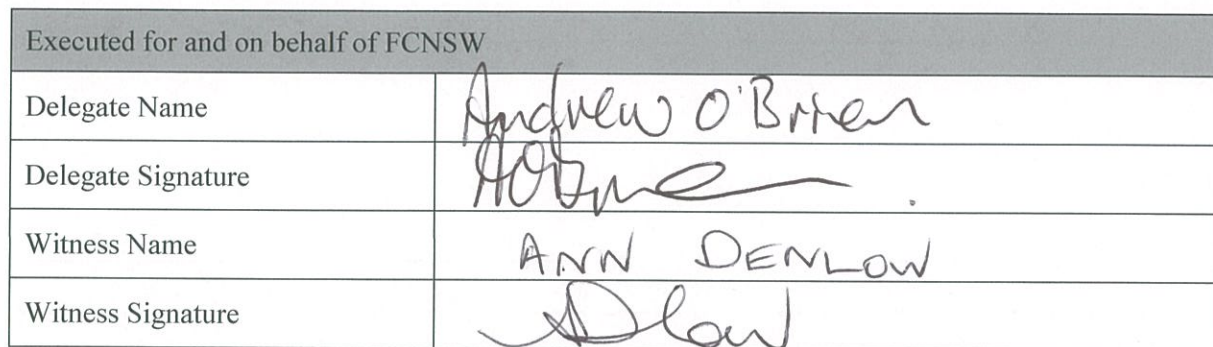 Executed for and on behalf of FCNSW
Delegate Name Andrew O'Brien
Delegate Signature
Witness Name ANN DENLOW
Witness Signature